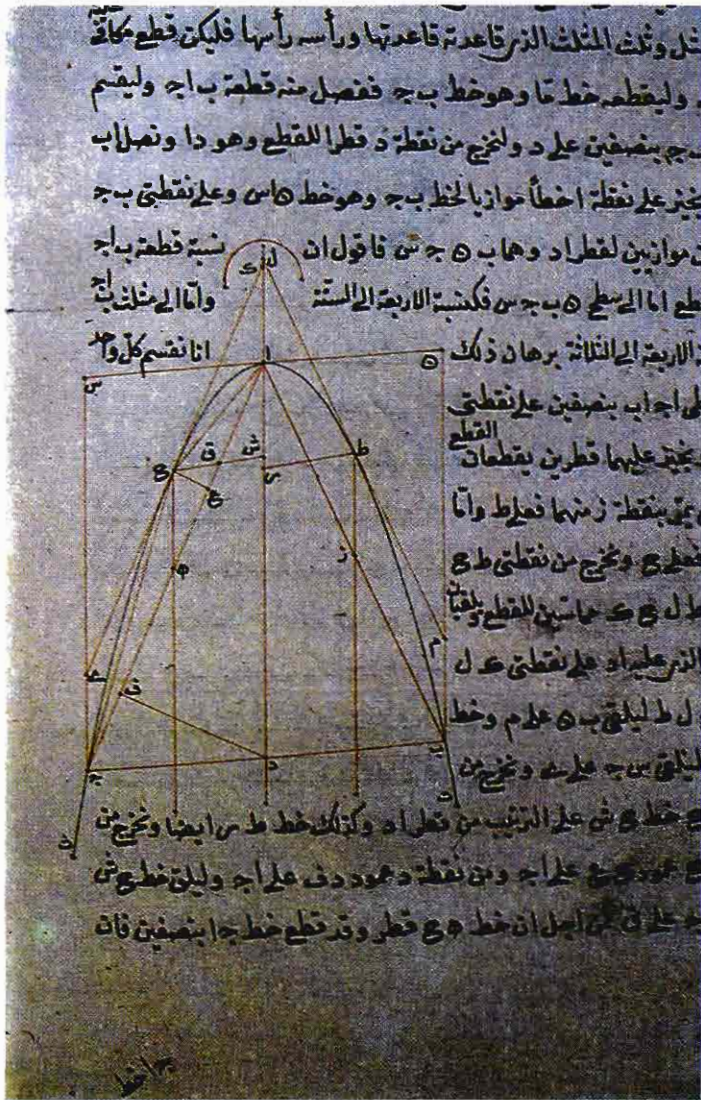 مثل وثلث المثلث الذى قاعدته قاعدتها ورأسه رأسها فليكن قطع مكافى
وليقطعه خط ما وهو خط ب ج ففصل منه قطعة ب ا ج وليقسم
ب ج بنصفين على د ولنخرج من نقطة د قطرا للقطع وهو د ا ونصل اب
على نقطة ا خطاً موازيا لخط ب ج وهو خط ه ا س وعلى نقطتى ب ج
موازيين لقطر ا د وهما ب ه ج س فاقول ان نسبة قطعة ب ا ج
القطع اما الى سطح ه ب ج س فكنسبة الاربعة الى الستة واما الى مثلث ب ا ج
الاربعة الى الثلاثة برهان ذلك انا نقسم كل واحد
ا ج ا ب بنصفين على نقطتى
ونجيز عليهما قطرين يقطعان القطع
بنقطة ز منهما فعلى ط واما
فعلى ح ونخرج من نقطتى ط ح
ط ل ح ك مماسين للقطع ويلقيان
الذى عليه ا د على نقطتى ك ل
ل ط ليلقى ب ه على م وخط
ليلقى س ج على ونخرج من
ح خط ح ش على الترتيب من قطر ا د وكذلك خط ط ر ايضا ونخرج من
ح عمود ح ع على ا ج ومن نقطة د عمود د ف على ا ج وليلق خط ح ش
ا ج على ق فمن اجل ان خط ه ح قطر وقد قطع خط ج ا بنصفين فان
ج ا خط
ل
ك
ا
ه
س
ش
ق
ح
ط
ر
ع
ز
م
ف
ج
د
ب
ت
ث